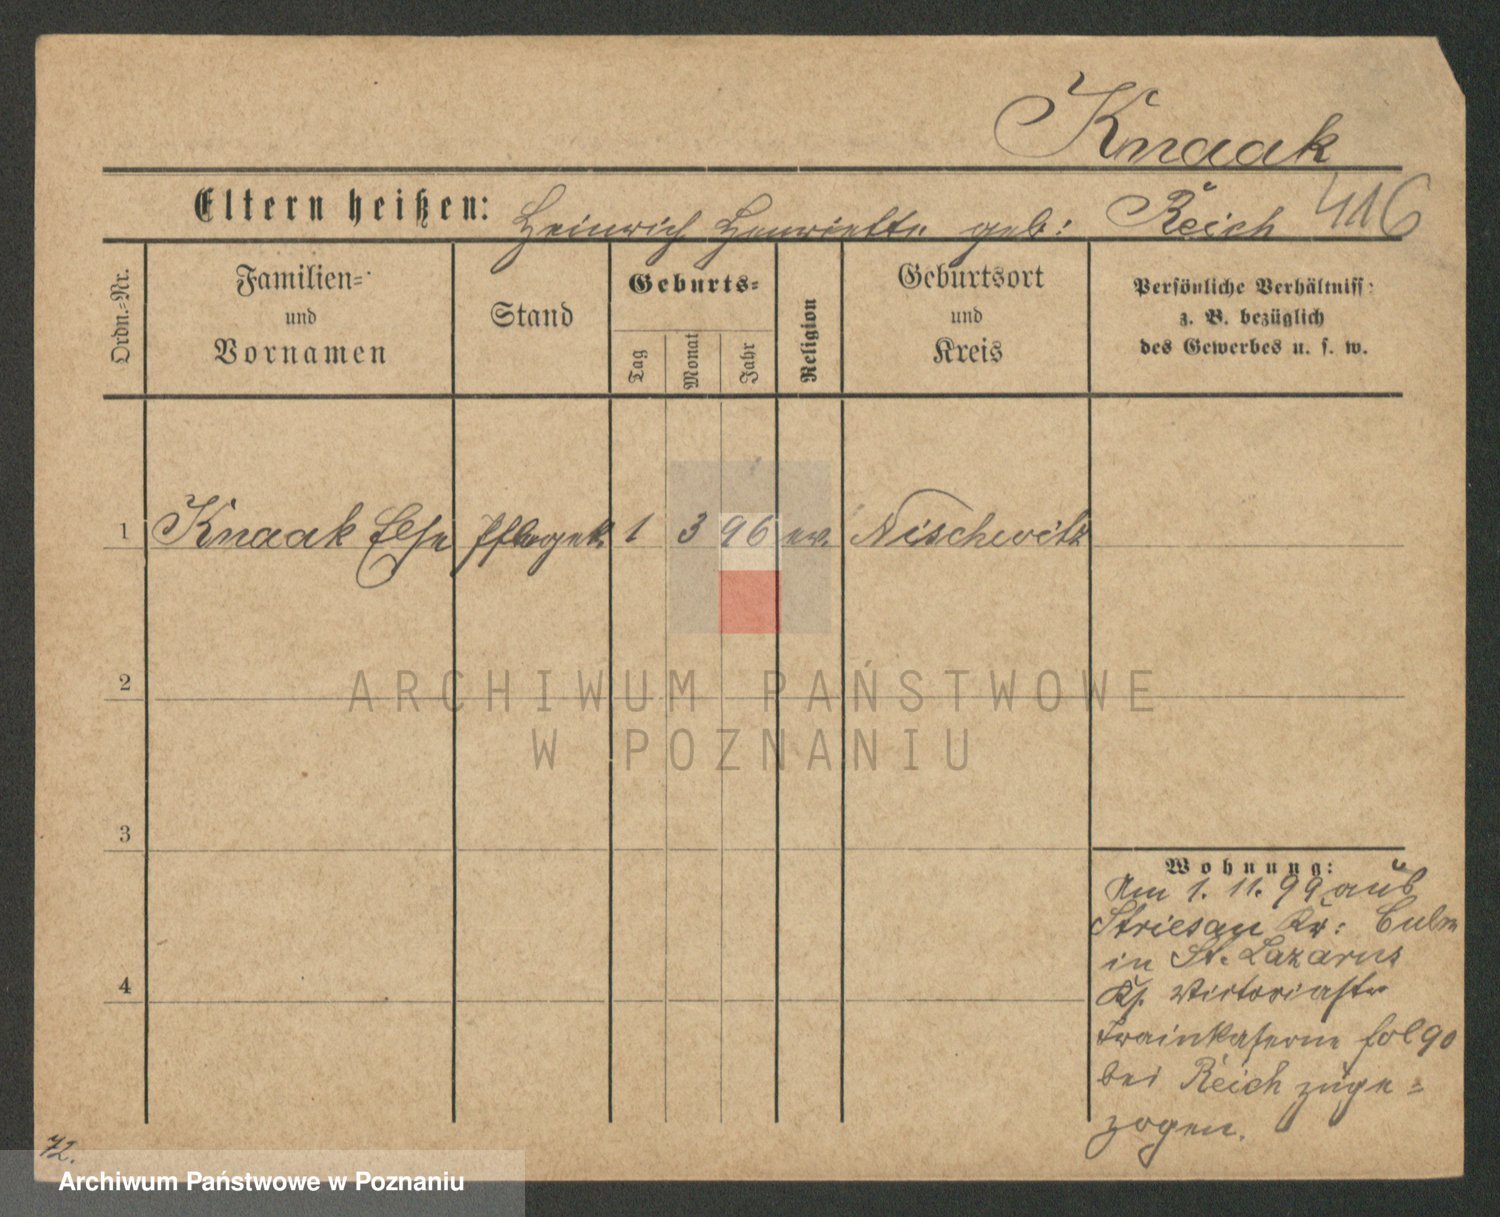 Knaak
Eltern heißen: Heinrich Henriette geb: Reich 416
Ordn.-Nr.
Familien=
und
Vornamen
Stand
Geburts=
Tag
Monat
Jahr
Religion
Geburtsort
und
Kreis
Persönliche Verhältniss:
z. B. bezüglich
des Gewerbes u. s. w.
1 Knaak Else Pflegek. 1 3 96 ev. Nischewitz
2
3
4
Wohnung:
Am 1. 11. 99 aus
Striesau Kr: Culm
in St. Lazarus
Victoriastr
Trainkaserne fol 90
bei Reich zuge=
zogen.
72.
ARCHIWUM PAŃSTWOWE
W POZNANIU
Archiwum Państwowe w Poznaniu